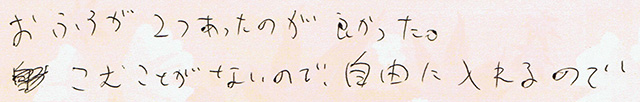 おふろが2つあったのが良かった。
こむことがないので、自由に入れるのでい